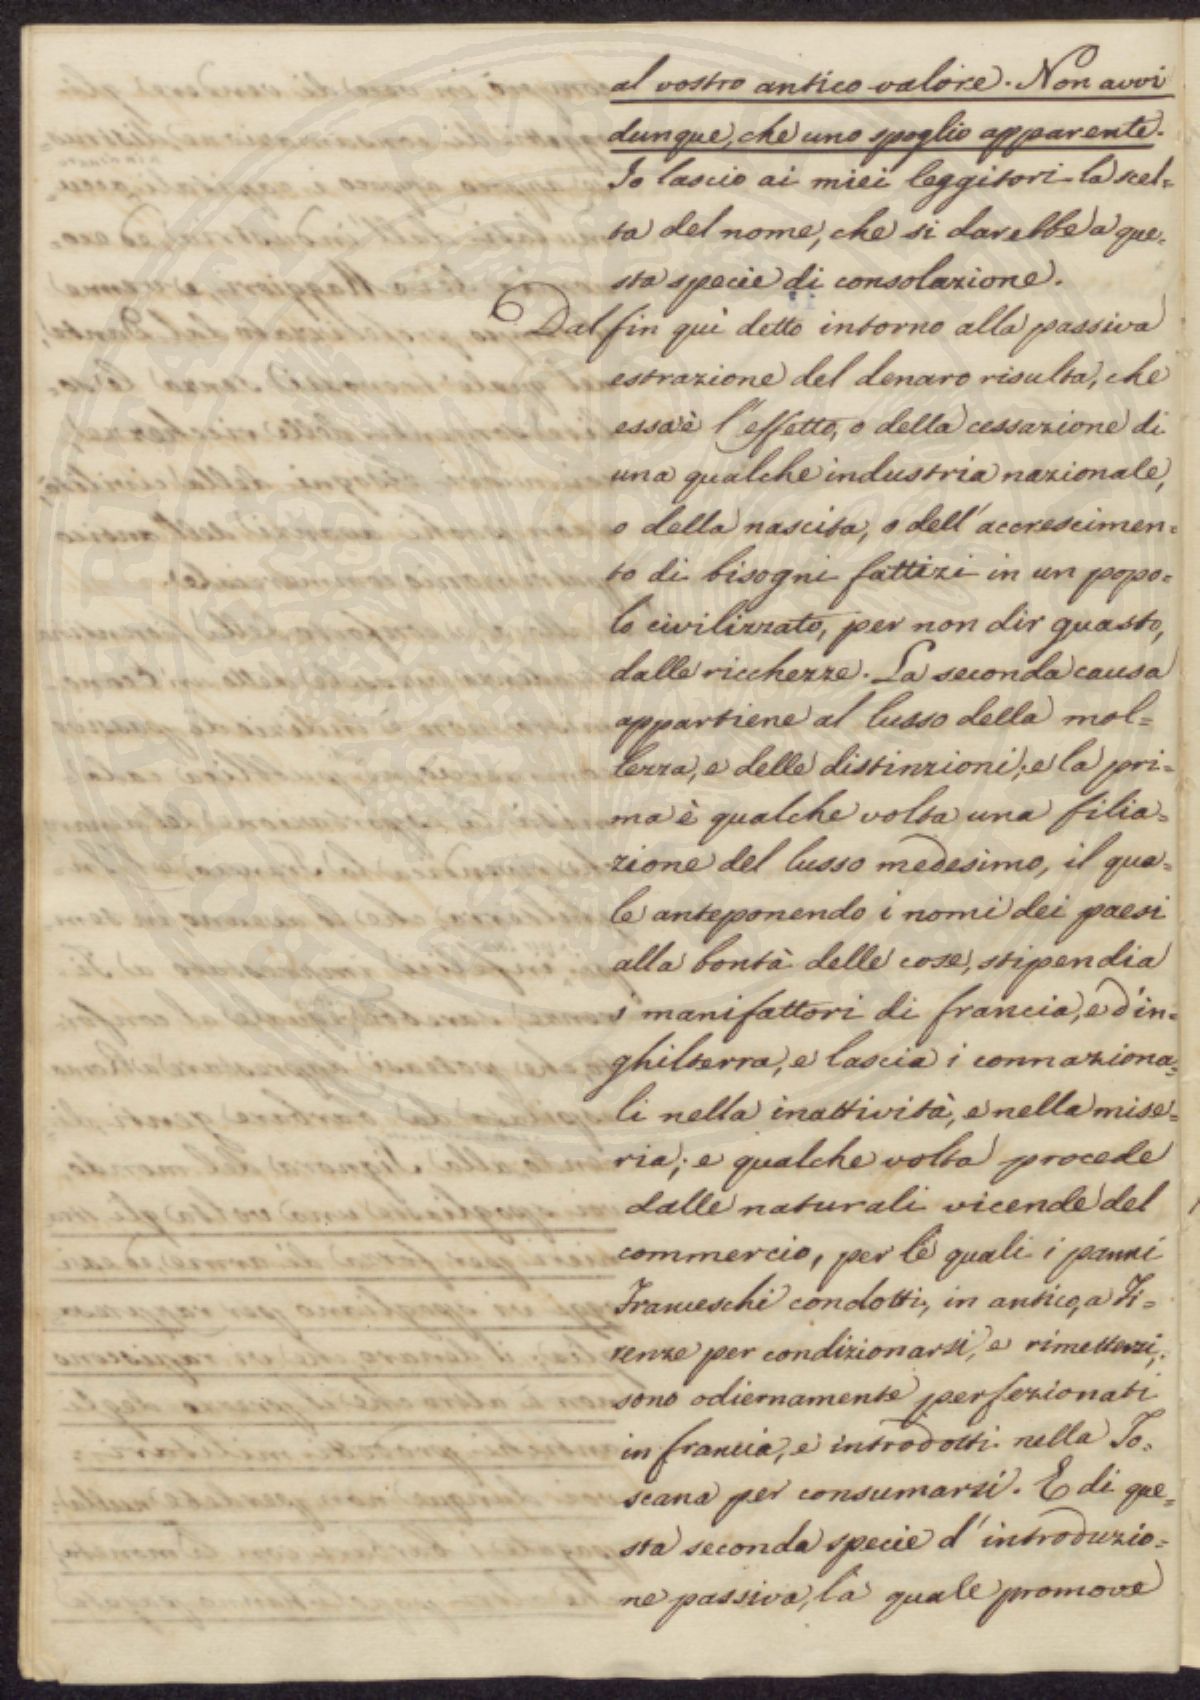 al vostro antico valore. Non avvi
dunque, che uno spoglio apparente.
Io lascio ai miei leggitori la scel=
ta del nome, che si darebbe a que=
sta specie di consolazione.
Dal fin quì detto intorno alla passiva
estrazione del denaro risulta, che
essa è l'effetto, o della cessazione di
una qualche industria nazionale,
o della nascita, o dell'accrescimen=
to di bisogni fattizi in un popo=
lo civilizzato, per non dir guasto,
dalle ricchezze. La seconda causa
appartiene al lusso della mol=
lezza, e delle distinzioni; e la pri=
ma è qualche volta una filia=
zione del lusso medesimo, il qua=
le anteponendo i nomi dei paesi
alla bontà delle cose, stipendia
i manifattori di francia, e d'in=
ghilterra, e lascia i connaziona=
li nella inattività, e nella mise=
ria; e qualche volta procede
dalle naturali vicende del
commercio, per le quali i panni
Franceschi condotti, in antico, a Fi=
renze per condizionarsi, e rimettersi,
sono odiernamente perfezionati
in francia, e introdotti nella To=
scana per consumarsi. E di que=
sta seconda specie d'introduzio=
ne passiva, la quale promove